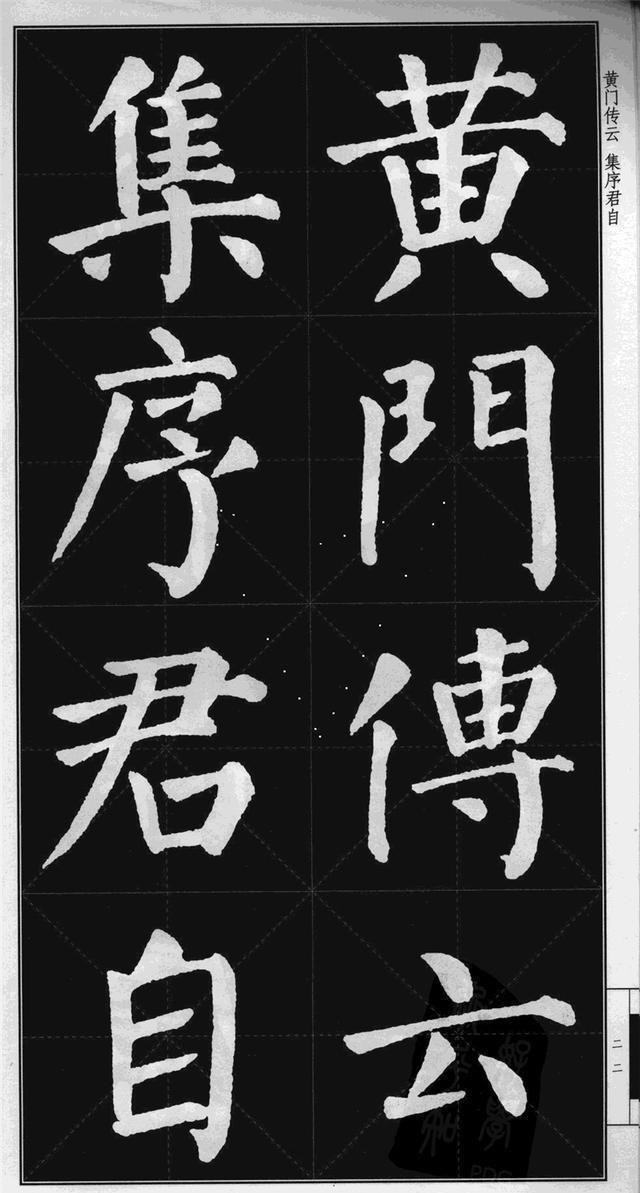 黄門傳云
集序君自
黄门传云 集序君自
二二
PDG